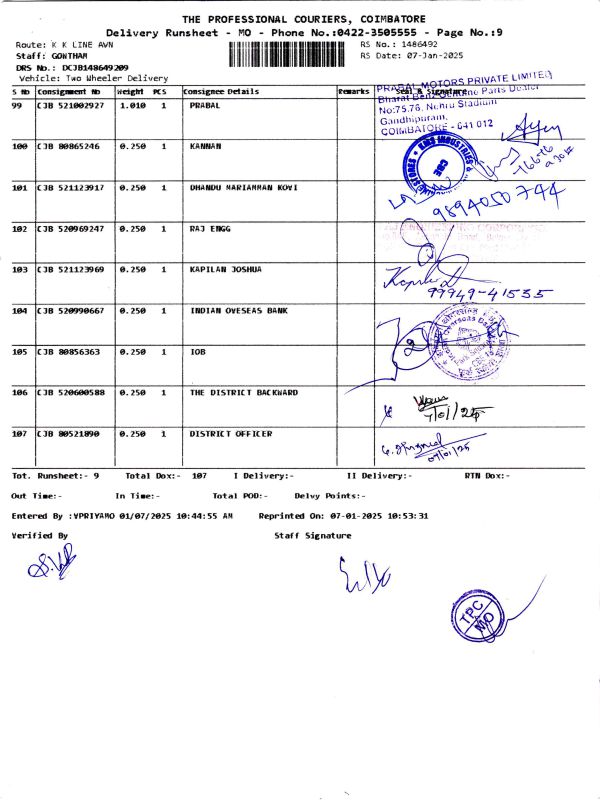 THE PROFESSIONAL COURIERS, COIMBATORE
Delivery Runsheet - MO - Phone No.:0422-3505555 - Page No.:9
Route: K K LINE AVN RS No.: 1486492
Staff: GONTHAM RS Date: 07-Jan-2025
DRS No.: DCJB148649209
Vehicle: Two Wheeler Delivery
S No Consignment No Weight PCS Consignee Details Remarks Seal & Signature
99 CJB 521002927 1.010 1 PRABAL
PRABAL MOTORS PRIVATE LIMITED
Bharat Benz Genuine Parts Dealer
No:75,76, Nehru Stadium
Gandhipuram,
COIMBATORE - 641 012
100 CJB 80865246 0.250 1 KANNAN
KMS INDUSTRIES & STORES
CBE
101 CJB 521123917 0.250 1 DHANDU MARIAMMAN KOVI
9894050744
102 CJB 520969247 0.250 1 RAJ ENGG
103 CJB 521123969 0.250 1 KAPILAN JOSHUA
99949-41535
104 CJB 520990667 0.250 1 INDIAN OVESEAS BANK
2
105 CJB 80856363 0.250 1 IOB
106 CJB 520600588 0.250 1 THE DISTRICT BACKWARD
7/01/25
107 CJB 80521890 0.250 1 DISTRICT OFFICER
07/01/25
Tot. Runsheet:- 9 Total Dox:- 107 I Delivery:- II Delivery:- RTN Dox:-
Out Time:- In Time:- Total POD:- Delvy Points:-
Entered By :VPRIYAMO 01/07/2025 10:44:55 AM Reprinted On: 07-01-2025 10:53:31
Verified By Staff Signature
TPC
MO